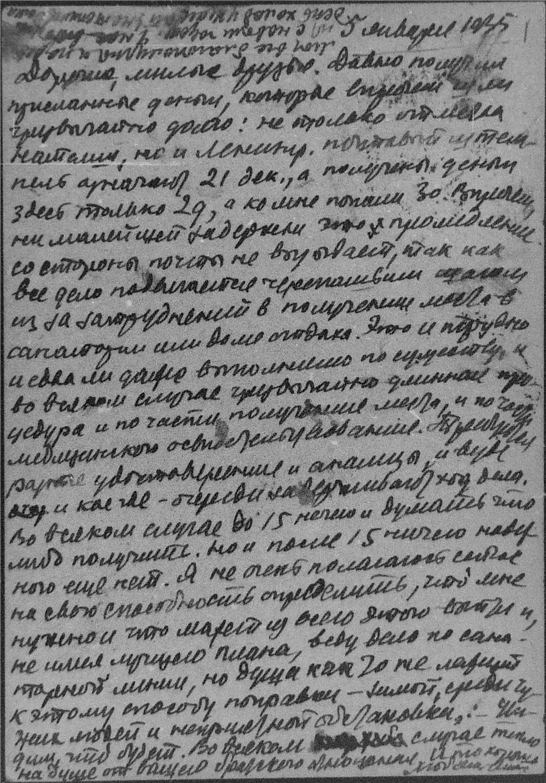 5 января 1935
Дорогие, милые друзья. Давно получил
присланные деньги, которые впрочем шли
чрезвычайно долго: не только отметка
но и Ленингр. почтовый штем-
пель означает 21 дек., а получены деньги
здесь только 29, а ко мне попали 30. Впрочем
ни малейшей задержки это промедление
со стороны почты не вызывает, так как
все дело подвигается черепашьим шагом
из за затруднений в получении места в
санатории или доме отдыха. Это и трудно
и едва ли даже выполнимо по существу, и
во всяком случае чрезвычайно длинная про-
цедура и по части получения места, и по части
медицинского освидетельствования. Требуются
разные удостоверения и анализы, и везде
и кое-где - очереди задерживают ход дела.
Во всяком случае до 15 нечего и думать что
либо получить. Но и после 15 ничего навер
ного еще нет. Я не очень полагаюсь сейчас
на свою способность определить, что мне
нужно и что может из всего этого выйти и,
не имея лучшего плана, веду дело по сана-
торной линии, но душа как то не лежит
к этому способу поправки - зимой, среди чу-
жих людей и непривычной обстановки. - Уви-
дим, что будет. Во всяком случае тепло
на душе от вашего братского отношения